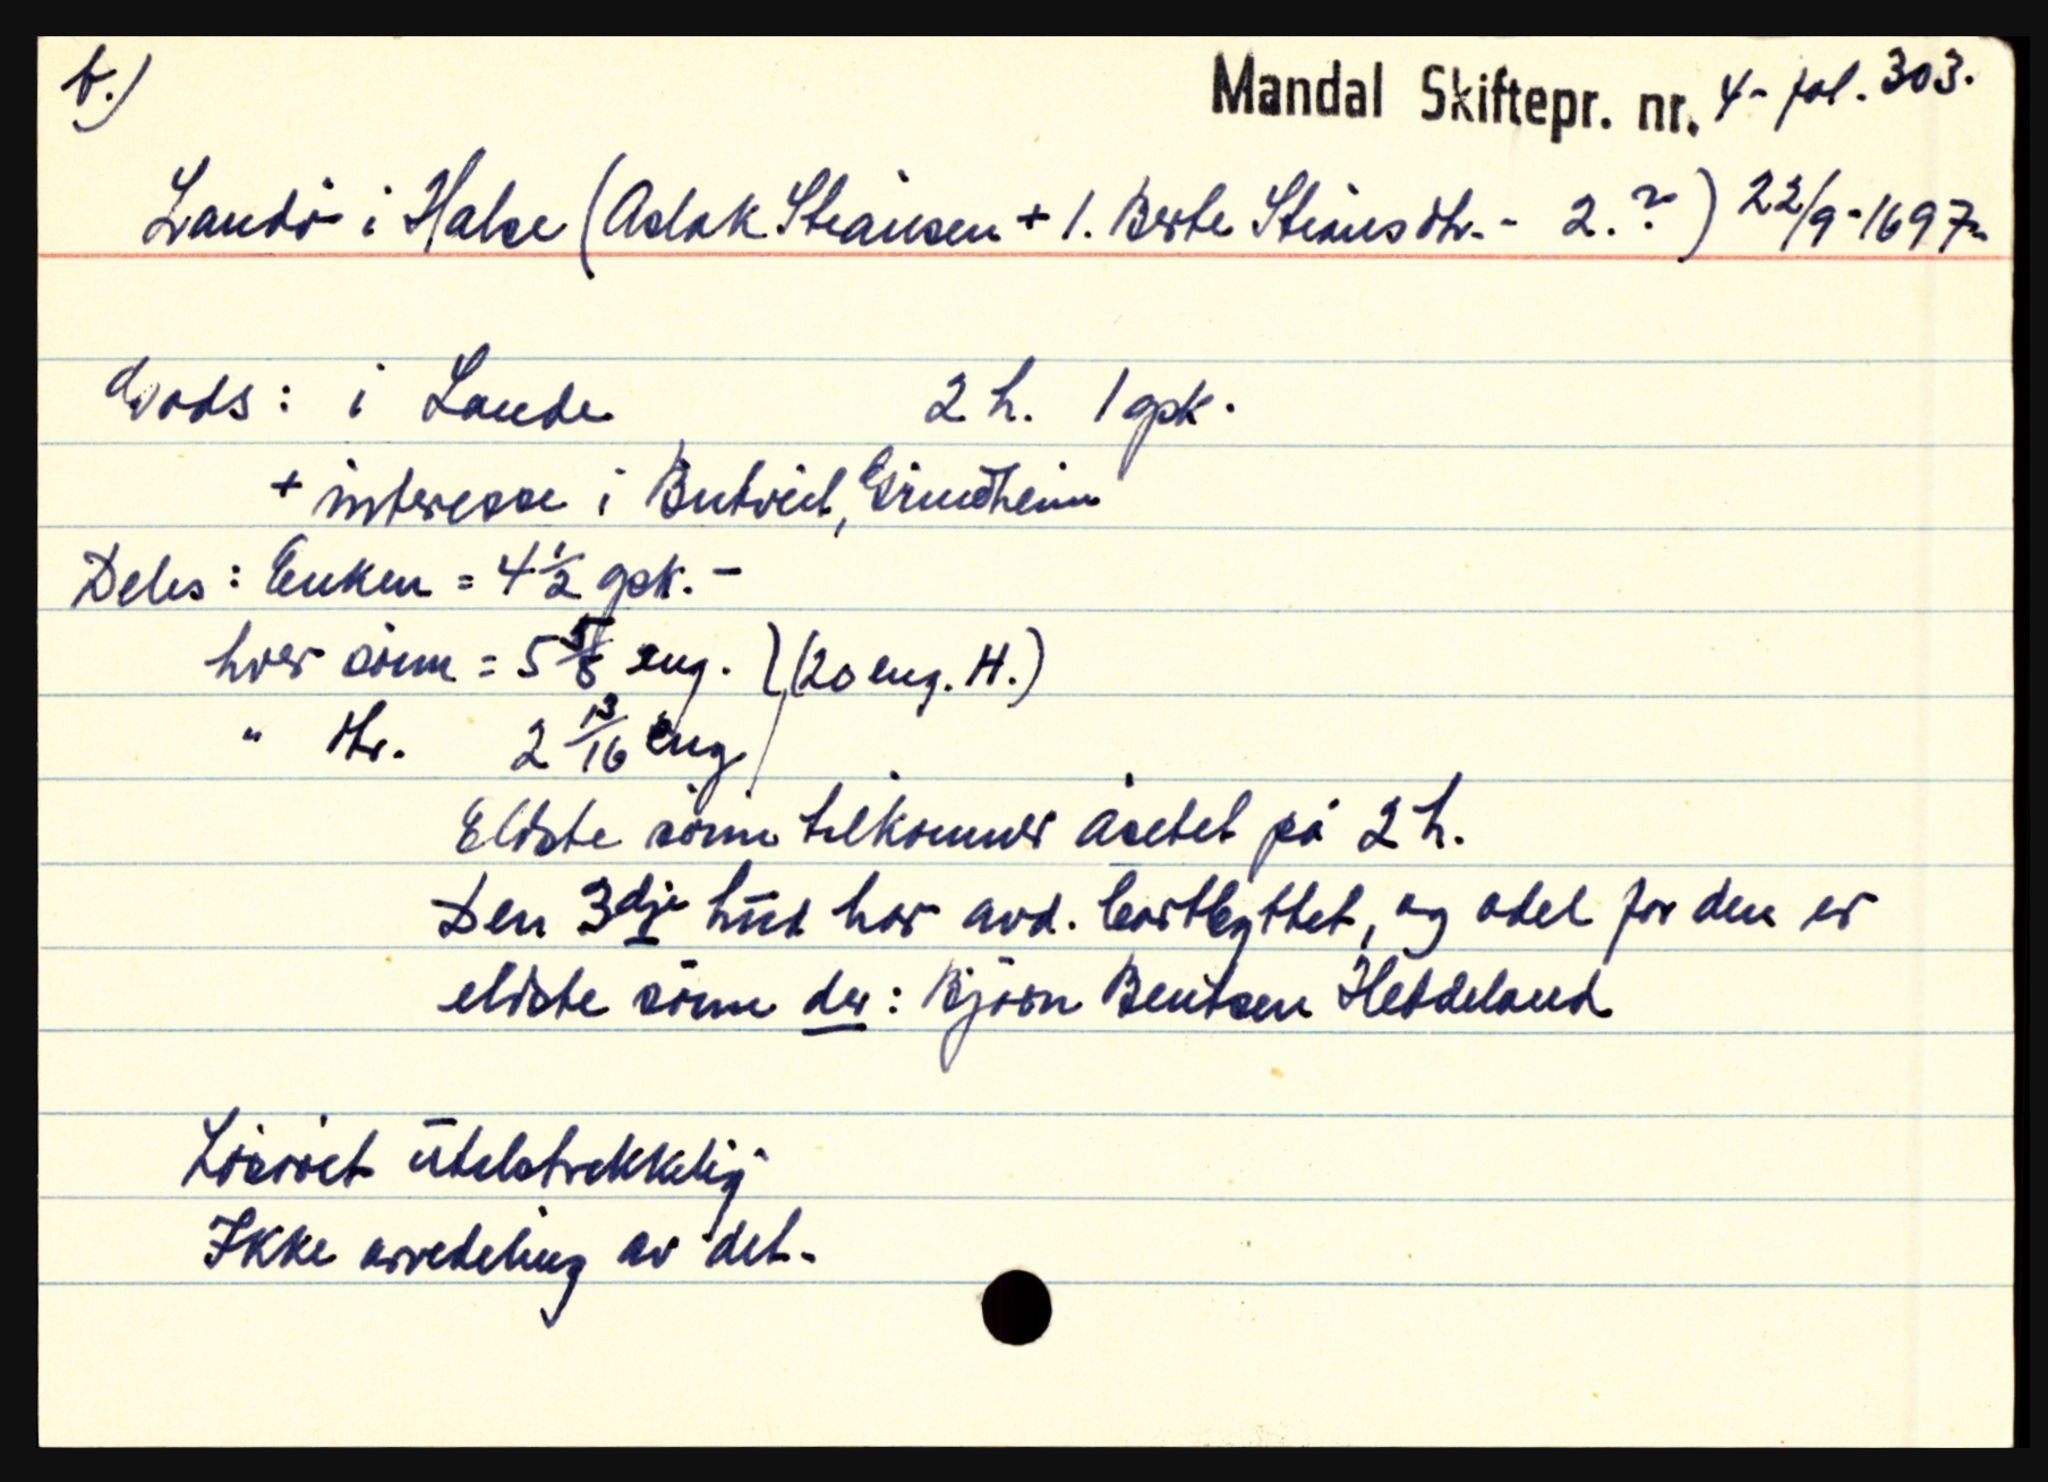 b.)
Mandal Skiftepr. nr. 4 - fol. 303.
Landö i Halse (Aslak Steinsen + 1. Berte Steinsdtr. - 2. ?) 22/9-1697.
Gods: i Lande 2 h. 1 gsk.
+ interesse i Butveit, Grindheim
Deles: Enken = 4 1/2 gsk. -
hver sönn = 5 5/8 eng. } (20 eng. H.)
" dtr. 2 13/16 eng
Eldste sönn tilkommer åsetet på 2 h.
Den 3dje hud har avd. bortbyttet, og odel for den er
eldste sönn der: Björn Bentsen Heddeland
Lösöret utilstrekkelig
Ikke arvedeling av det.